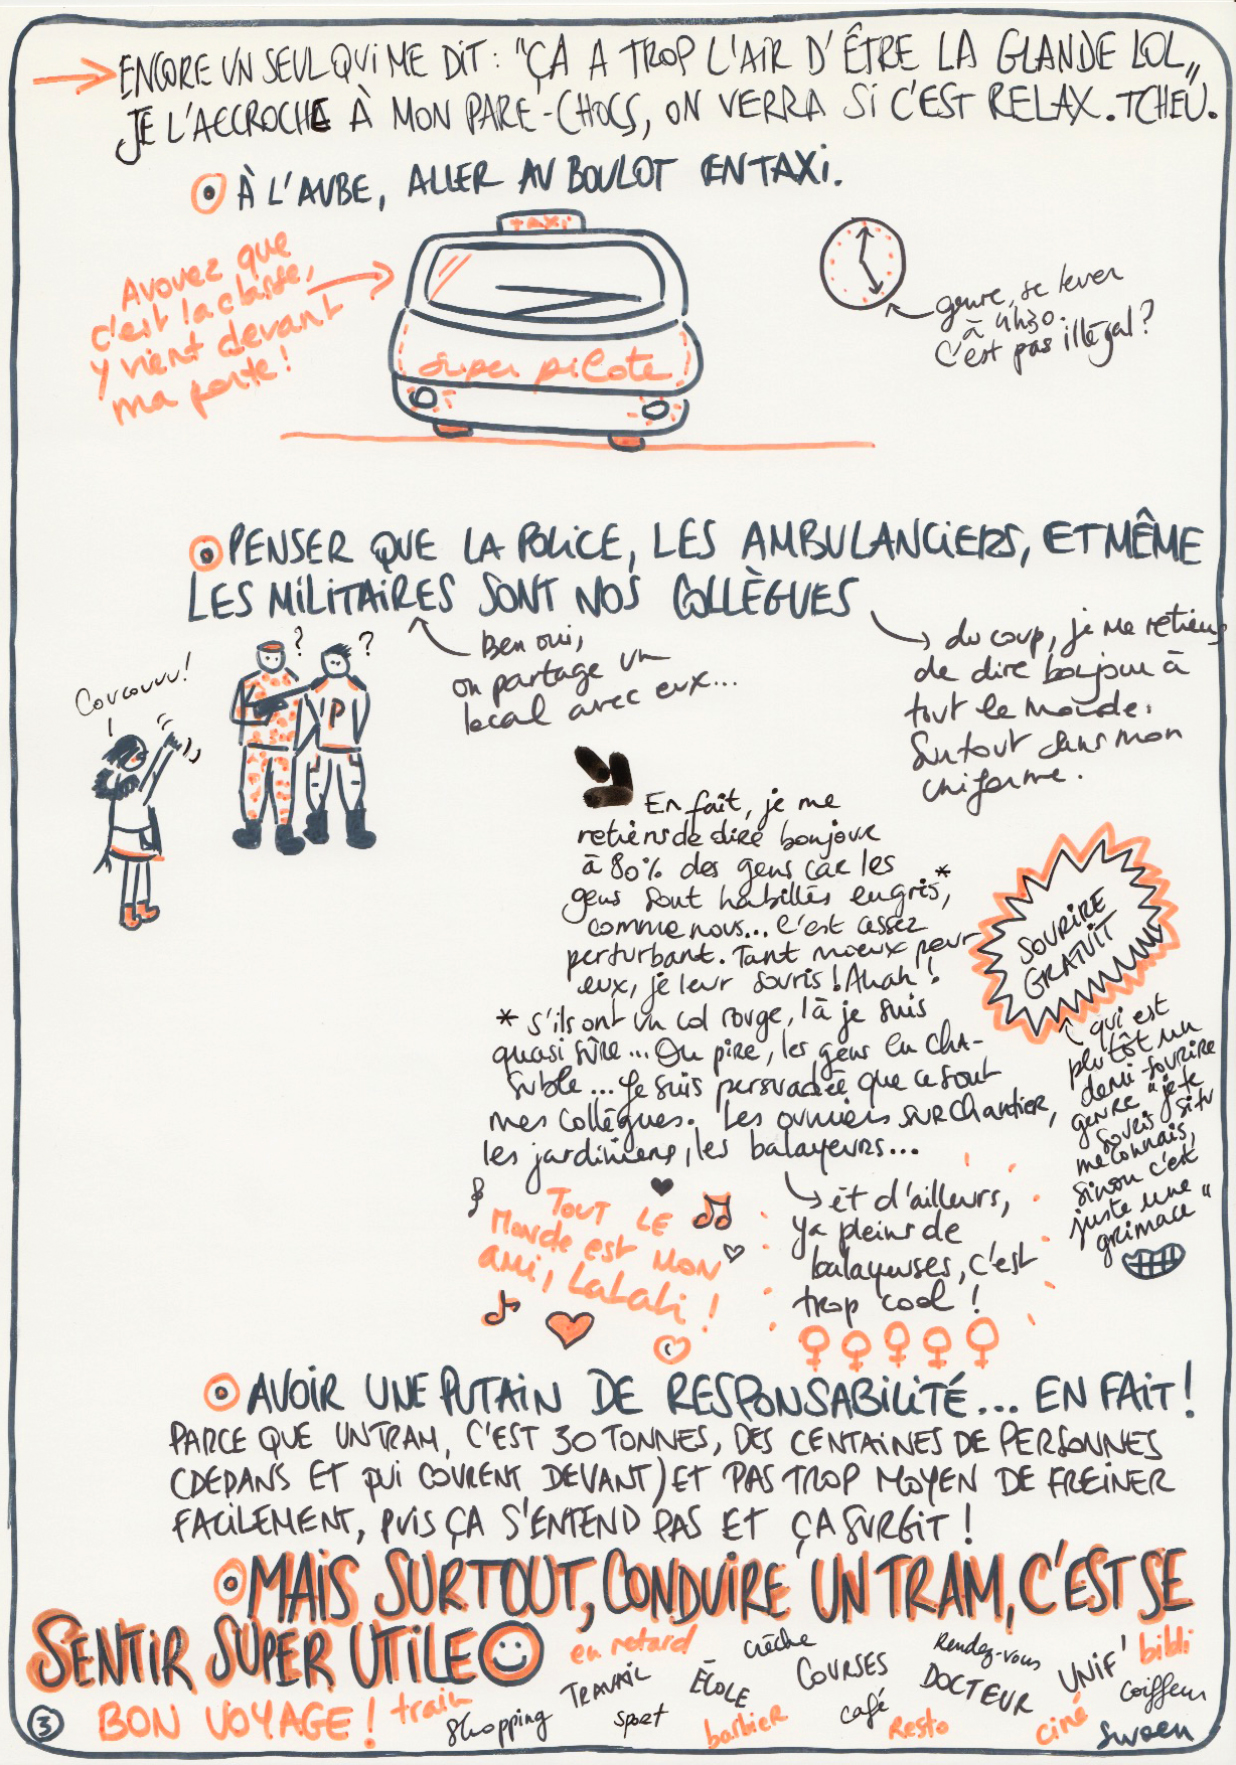 → ENCORE UN SEUL QUI ME DIT : "ÇA A TROP L'AIR D'ÊTRE LA GLANDE LOL„
JE L'ACCROCHE À MON PARE-CHOCS, ON VERRA SI C'EST RELAX. TCHEU.
À L'AUBE, ALLER AU BOULOT EN TAXI.
TAXI
Super pilote
Avouez que
c'est la classe,
y vient devant
ma porte !
genre, se lever
à 4h30.
C'est pas illégal ?
PENSER QUE LA POLICE, LES AMBULANCIERS, ET MÊME
LES MILITAIRES SONT NOS COLLÈGUES
Coucouuu !
? ?
P
Ben oui,
on partage un
local avec eux...
du coup, je me retiens
de dire bonjour à
tout le monde.
Surtout dans mon
uniforme.
En fait, je me
retiens de dire bonjour
à 80% des gens car les
gens sont habillés en gris*,
comme nous... C'est assez
perturbant. Tant mieux pour
eux, je leur souris ! Ahah !
* S'ils ont un col rouge, là je suis
quasi sûre... Ou pire, les gens en cha-
suble... Je suis persuadée que ce sont
mes collègues. Les ouvriers sur chantier,
les jardiniers, les balayeurs...
SOURIRE
GRATUIT
qui est
plutôt un
demi-sourire
genre "je te
souris si tu
me connais,
sinon c'est
juste une
grimace"
TOUT LE
Monde est MON
ami, LaLaLi !
et d'ailleurs,
ya pleins de
balayeuses, c'est
trop cool !
AVOIR UNE PUTAIN DE RESPONSABILITÉ... EN FAIT !
PARCE QUE UN TRAM, C'EST 30 TONNES, DES CENTAINES DE PERSONNES
(DEDANS ET QUI COURENT DEVANT) ET PAS TROP MOYEN DE FREINER
FACILEMENT, PUIS ÇA S'ENTEND PAS ET ÇA SURGIT !
MAIS SURTOUT, CONDUIRE UN TRAM, C'EST SE
SENTIR SUPER UTILE
BON VOYAGE !
train
en retard
shopping
TRAVAIL
sport
ÉCOLE
crèche
barbier
COURSES
café
Resto
Rendez-vous
DOCTEUR
UNIF'
ciné
bildi
coiffeur
Swaen
3